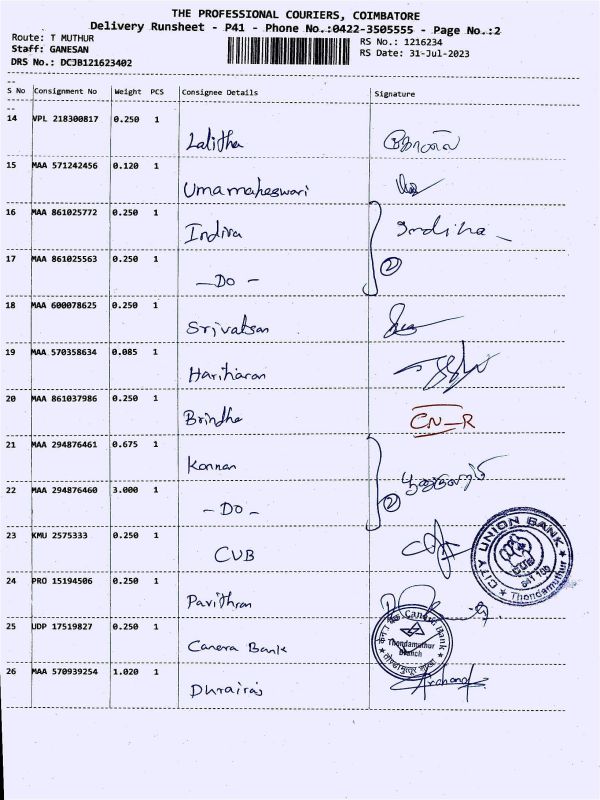 THE PROFESSIONAL COURIERS, COIMBATORE
Delivery Runsheet - P41 - Phone No.:0422-3505555 - Page No.:2
Route: T MUTHUR
RS No.: 1216234
Staff: GANESAN
RS Date: 31-Jul-2023
DRS No.: DCJB121623402
S No Consignment No Weight PCS Consignee Details Signature
14 VPL 218300817 0.250 1
Lalitha
15 MAA 571242456 0.120 1
Umamaheswari
16 MAA 861025772 0.250 1
Indira Indira
17 MAA 861025563 0.250 1
- Do - 2
18 MAA 600078625 0.250 1
Srivatsan
19 MAA 570358634 0.085 1
Hariharan
20 MAA 861037986 0.250 1
Brindha CN-R
21 MAA 294876461 0.675 1
Kannan
22 MAA 294876460 3.000 1
- Do - 2
23 KMU 2575333 0.250 1
CUB
CITY UNION BANK
CUB
Thondamuthur
24 PRO 15194506 0.250 1
Pavithran
25 UDP 17519827 0.250 1
Canera Bank
Canara Bank
Thondamuthur
Branch
26 MAA 570939254 1.020 1
Dhrairaj